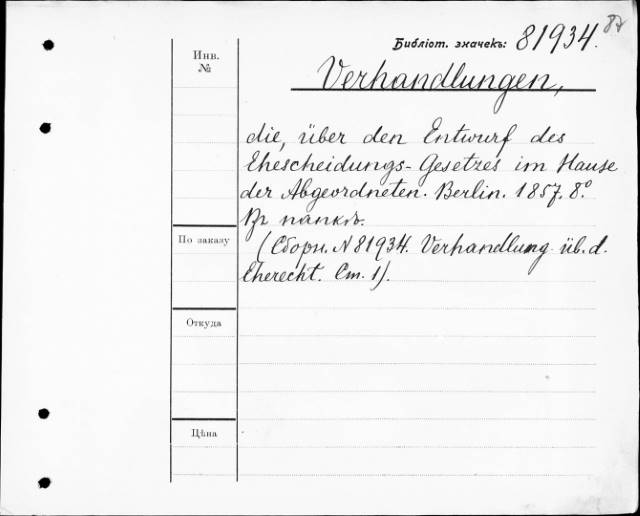 87
Библіот. значекъ: 81934.
Инв.
№
Verhandlungen,
die, über den Entwurf des
Ehescheidungs-Gesetzes im Hause
der Abgeordneten. Berlin. 1857. 8°
Въ папкѣ.
По заказу
(Сборн. N 81934. Verhandlung üb. d.
Eherecht. Ст. 1).
Откуда
Цѣна